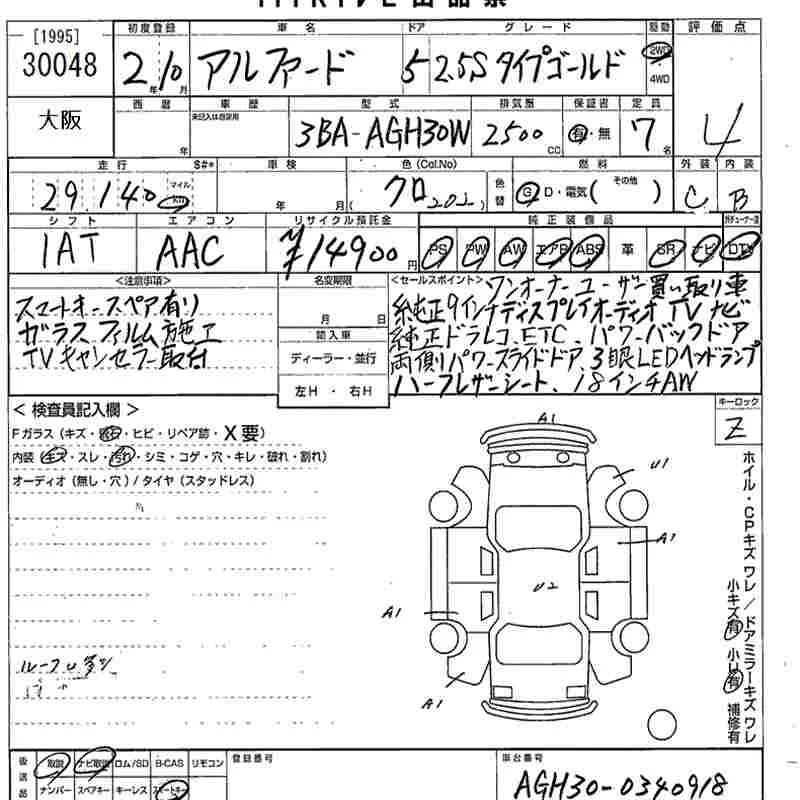 [1995]
30048
初度登録
2年10月
車名
アルファード
ドア
5
グレード
2.5S タイプゴールド
駆動
2WD
4WD
評価点
4
大阪
西暦
年
車歴
未記入は自家用
型式
3BA-AGH30W
排気量
2500 CC
保証書
有・無
定員
7名
走行
29,140
マイル
km
S#*
車検
年 月
色(Cal.No)
クロ 202
色替
燃料
G・D・電気( その他 )
外装
C
内装
B
シフト
IAT
エアコン
AAC
リサイクル預託金
¥14900円
純正装備品
PS PW AW エアB ABS 革 SR ナビ DTV
<注意事項>
スマートキースペア有り
ガラスフィルム施工
TVキャンセラー取付
名変期限
月 日
輸入車
ディーラー・並行
左H ・ 右H
<セールスポイント> ワンオーナーユーザー買い取り車
純正9インチディスプレイオーディオ TV ナビ
純正ドラレコ. ETC. パワーバックドア
両側パワースライドドア. 3眼LEDヘッドランプ
ハーフレザーシート. 18インチAW
< 検査員記入欄 >
Fガラス(キズ・・ヒビ・リペア跡・X要)
内装(キズ・スレ・汚れ・シミ・コゲ・穴・キレ・破れ・割れ)
オーディオ(無し・穴)/タイヤ(スタッドレス)
キーロック
Z
A1
U1
A1
U2
A1
A1
ホイル・CPキズワレ/ドアミラーキズワレ
小キズ有 小U有 補修有
後送品
取説 ナビ取説 ロム/SD B-CAS リモコン
ナンバー スペアキー キーレス スマートキー
登録番号
車台番号
AGH30-0340918